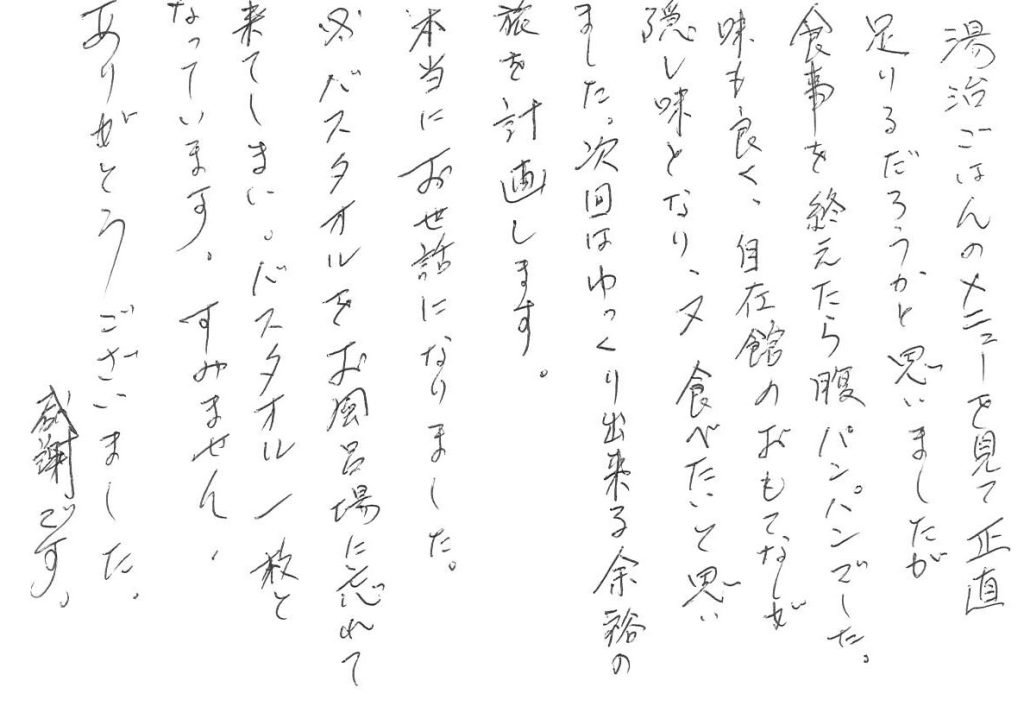 湯治ごはんのメニューを見て正直
足りるだろうかと思いましたが
食事を終えたら腹パンパンでした。
味も良く、自在館のおもてなしが
隠し味となり、又食べたいと思い
ました。次回はゆっくり出来る余裕の
旅を計画します。
本当にお世話になりました。
バスタオルをお風呂場に忘れて
来てしまい。バスタオル一枚と
なっています。すみません、
ありがとうございました。
感謝です。